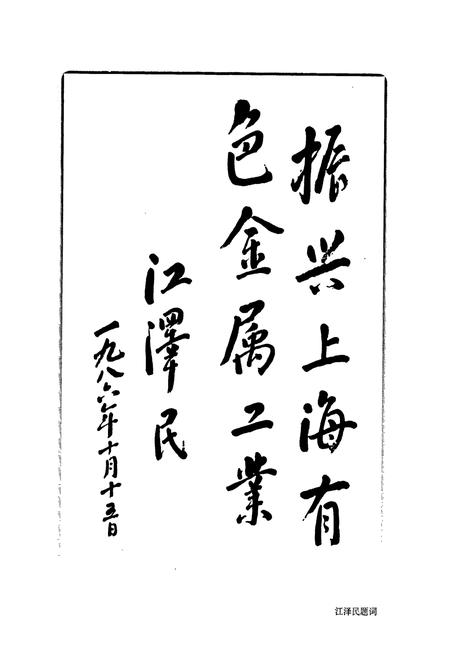 振兴上海有
色金属工業
江澤民
一九八六年十月十五日
江泽民题词